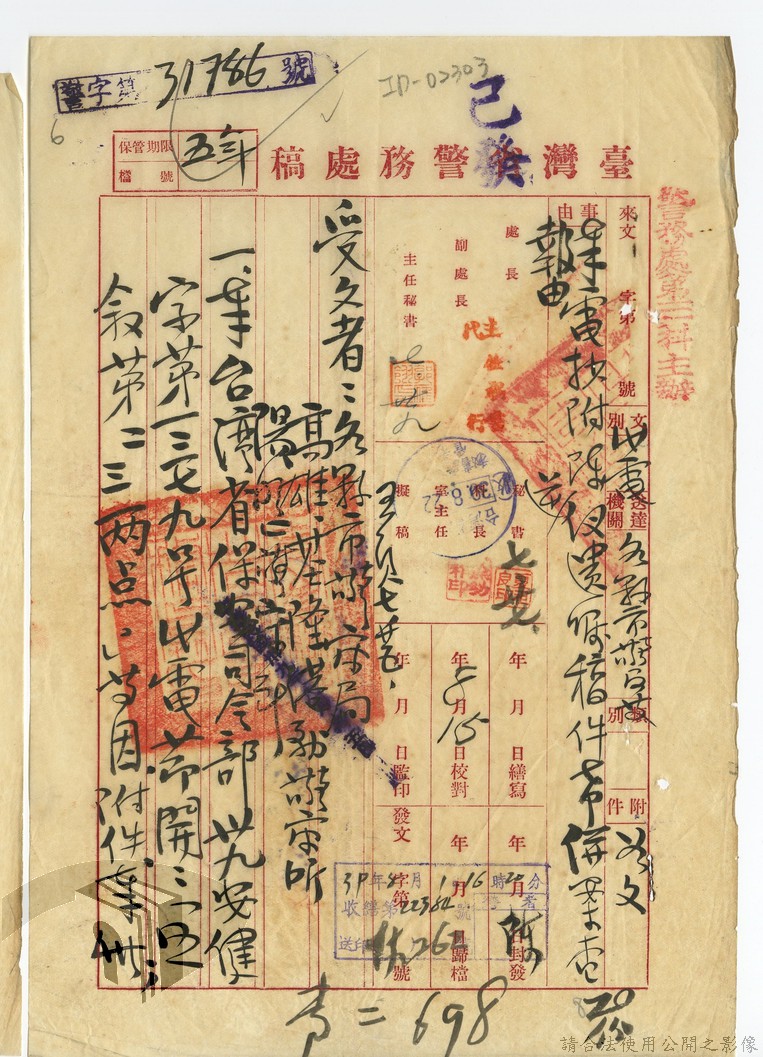 警字第31786號
ID-02303
6
已發
臺灣省警務處稿
保管期限
五年
檔號
警務處第二科主辦
來文
字第
號
文別
代電
送達機關
各縣市警局等
類別
附件
如文
事由
奉電抄附陳儀遺囑稿件希併案查報由
處長
副處長
主任秘書
主任秘書代行
秘書
科長
室主任
擬稿
年月日繕寫
年月日校對
8 15
年月日監印
年月日封發
年月日歸檔
發文
字第
號
39年8月16
時20分
收繕第22384號
送印
者
受文者:各縣市警察局
高雄、基隆港務警察所
一、奉台灣省保安司令部卅九安健
字第一三七九號代電節開三、照
敘第二三兩点」等因附件奉此
20份
698
請合法使用公開之影像